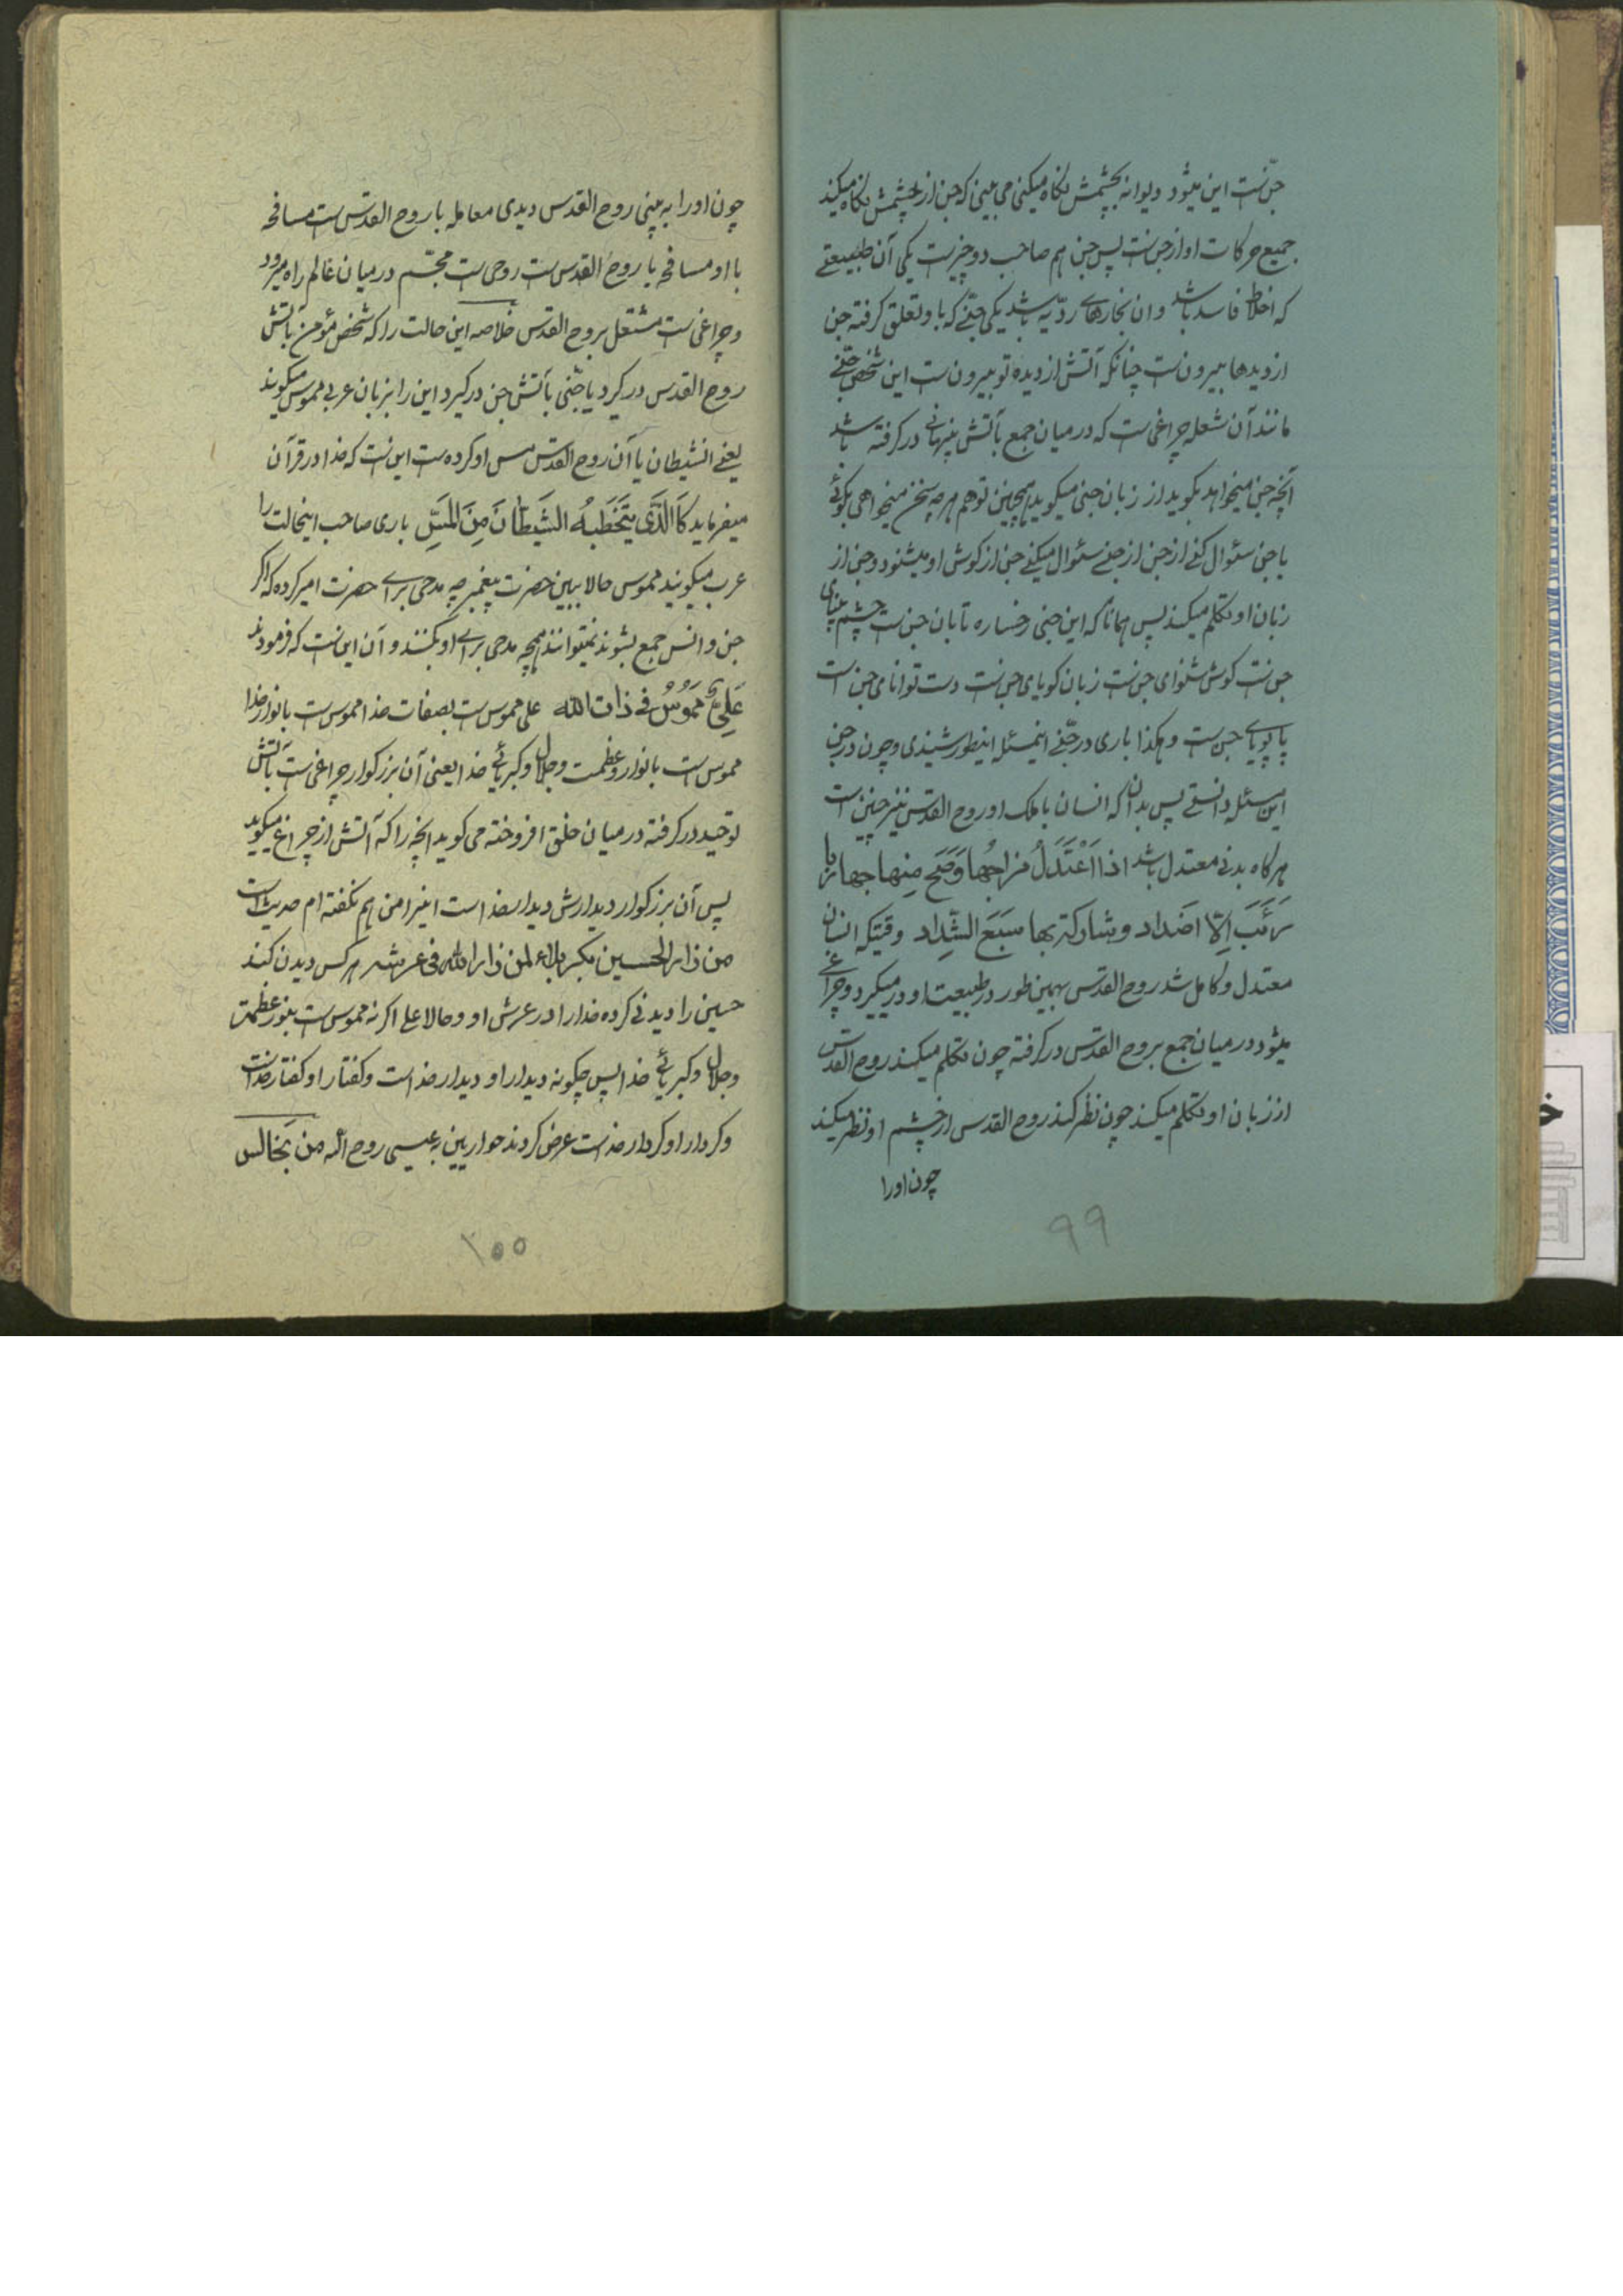 جن است این میشود دیوانه بچشمش نگاه میکنی می بینی که جن از چشمش نگاه میکند
جمیع حرکات او از جن است پس جن هم صاحب دو چیز است یکی آن طبیعتی
که اخلاط فاسد باشد و ان بخارهای ردّیه باشد یکی جنّی که باو تعلق گرفته جن
از دیدها بیرون است چنانکه آتش از دیده تو بیرون است این شخص جنّی
مانند آن شعله چراغی است که در میان جمع بآتش پنهانی در گرفته باشد
آنچه جن میخواهد بگوید از زبان جنی میگوید همچنین تو هم هر چه سخن میخواهی بگوئی
با جنی سئوال کنی از جن از جنی سئوال میکنی جن از گوش او میشنود و جن از
زبان او تکلم میکند پس همانا که این جنی رخساره تابان جن است چشم بینای
جن است گوش شنوای جن است زبان گویای جن است دست توانای جن است
پا پویای جن است و هکذا باری در جنّی اینمسئله اینطور شنیدی و چون در جنی
این مسئله دانستی پس بدان که انسان با ملک او روح القدس نیز چنین است
هر گاه بدنی معتدل باشد اذا اعْتَدَلَ مزاجُها وَصَحَ مِنها
اضداد و شارک بها سَبَعَ الشِّداد وقتیکه انسان
معتدل و کامل شد روح القدس بهمین طور در طبیعت او در میگیرد و چراغی
میشود در میان جمع بروح القدس در گرفته چون تکلم میکند روح القدس
از زبان او تکلم میکند چون نظر کند روح القدس از چشم او نظر میکند
چون اورا
۹۹
چون اورا به بینی روح القدس دیدی معامله با روح القدس است مسافحه
با او مسافحه با روح القدس است روحی است مجسّم در میان عالم راه میرود
و چراغی است مشتعل بروح القدس خلاصه این حالت را که شخص مؤمن بآتش
روح القدس در گیرد یا جنّی بآتش جن در گیرد این را بزبان عربی ممسوس میگویند
یعنی انشیطان یا آن روح القدس مس او کرده است این است که خدا در قرآن
میفرماید کَالَّذَی یَتَخَطَبهُ الشَیَطانَ مِنَ المَسِّ باری صاحب اینحالت را
عرب میگویند ممسوس حالا ببین حضرت پیغمبر چه مدحی برای حضرت امیر کرده که اگر
جن و انس جمع بشوند نمیتوانند همچه مدحی برای او بکنند و آن این است که فرمودند
عَلیٌّ مَمسُوسٌ فی ذات الله علی ممسوس است بصفات خدا ممسوس است بانوار خدا
ممسوس است بانوار و عظمت و جلال و کبریائی خدا یعنی آن بزرگوار چراغی است بآتش
توحید در گرفته در میان خلق افروخته می گوید آنچه را که آتش از چراغ میگوید
پس آن بزرگوار دیدارش دیدار خداست اینرا من هم نگفته ام حدیث است
من زار الحسین بکربلاء کمن زار الله فی عرشه هر کس دیدن کند
حسین را دیدنی کرده خدارا در عرش او و حالا علی اگر نه ممسوس است بنور عظمت
و جلال و کبریائی خدا پس چگونه دیدار او دیدار خداست و گفتار او گفتار خداست
و کردار او کردار خداست عرض کردند حواریین به عیسی روح الله من نجالس
۱۰۰